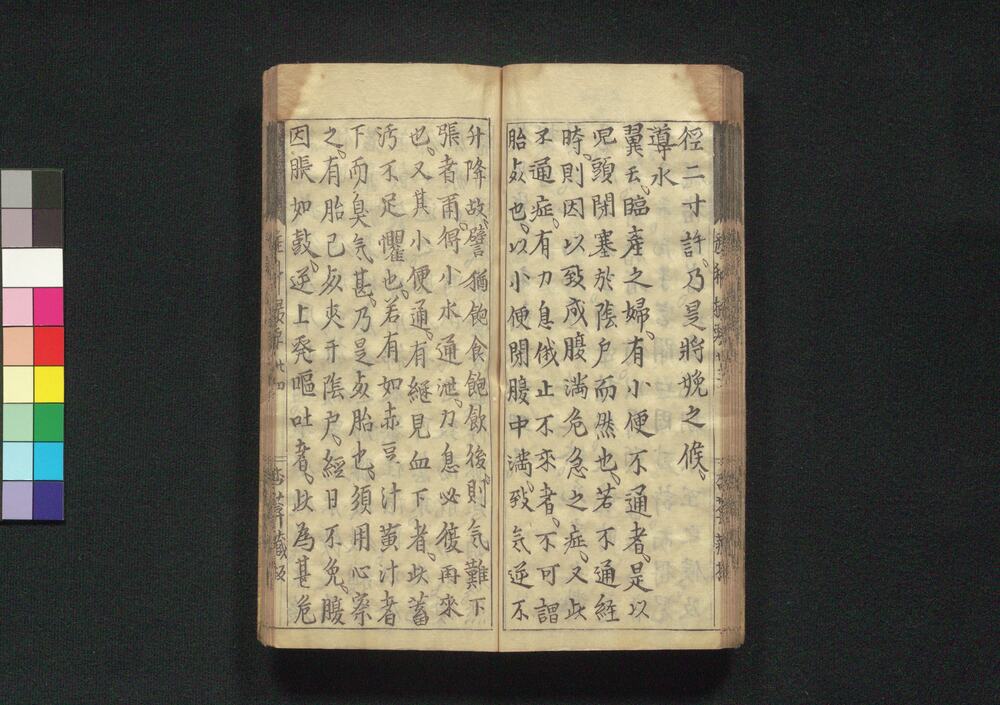 徑二寸許乃是將娩之候
導水
翼云臨産之婦有小便不通者是以
児頭閉塞於陰戶而然也若不通經
時則因以致成腹満危急之症又此
不通症有力息俄止不來者不可謂
胎死也以小便閉腹中満致気逆不
升降故譬猶飽食飽飲後則気難下
張者甭得小水通泄力息必復再來
也又其小便通有継見血下者此蓄
汚不足懼也若有如赤豆汁黄汁者
下而臭気甚乃是死胎也須用心察
之有胎已死夾于陰戶經日不免腹
因脹如鼓逆上発嘔吐者此為甚危